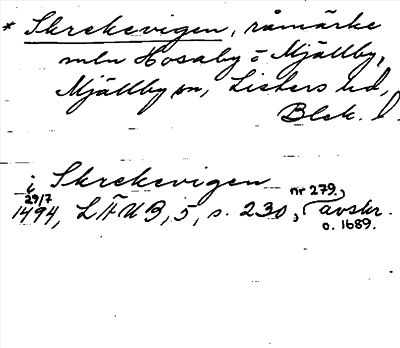 * Skrekevigen, råmärke
mln Hosaby o Mjällby,
Mjällby sn, Listers hd,
Blek. l.
i Skrekevigen
29/7 nr 279.,
1494, LÄUB, 5, s. 230, avskr.
o. 1689.